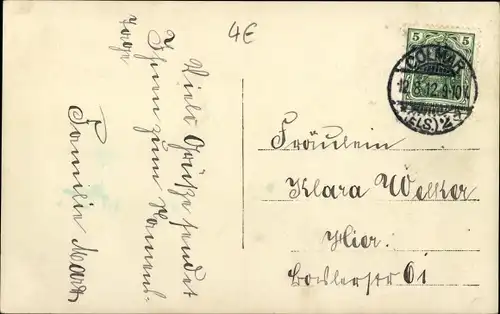 4€
Viele Grüße sendet
Ihnen zum Namens-
tage
Familie Marx
5 5
COLMAR
12.8.12.9-10V.
* (ELS) 2 *
Fräulein
Klara Welker
Hier.
61